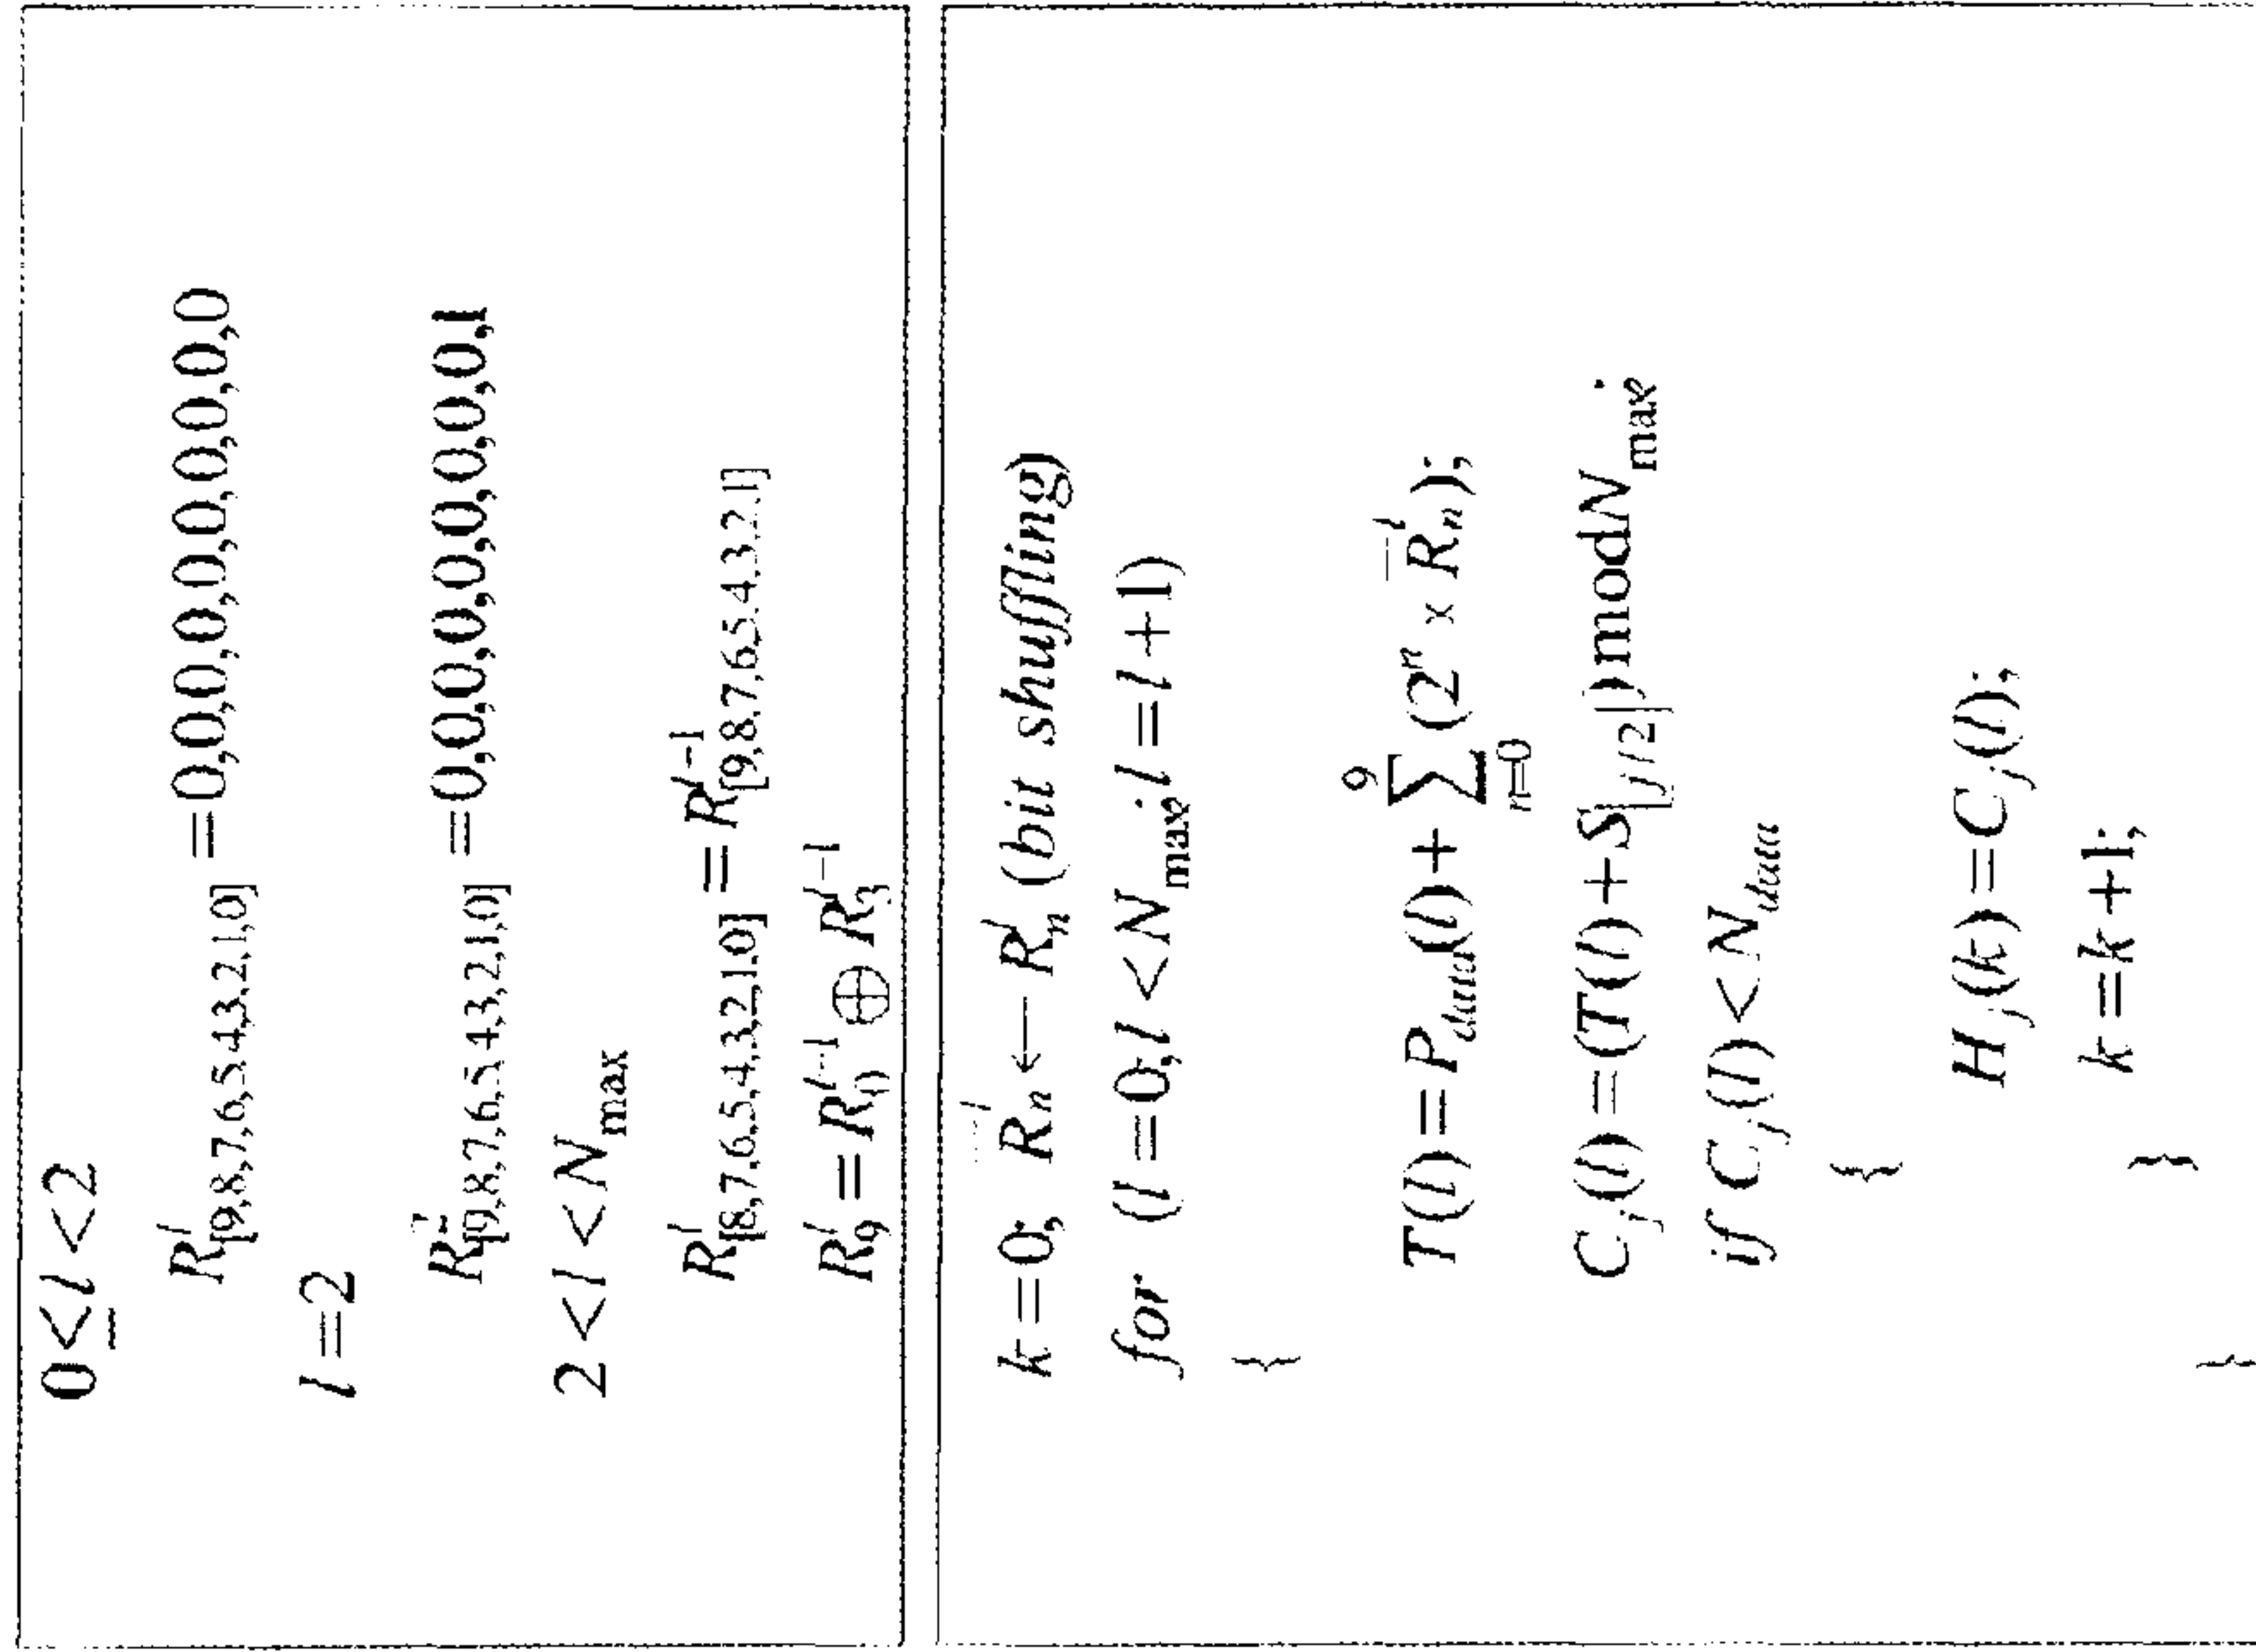 0 ≤ l < 2
R^l_[9,8,7,6,5,4,3,2,1,0] = 0,0,0,0,0,0,0,0,0,0
l = 2
R^2_[9,8,7,6,5,4,3,2,1,0] = 0,0,0,0,0,0,0,0,0,1
2 < l < N_max
R^l_[8,7,6,5,4,3,2,1,0] = R^{l-1}_[9,8,7,6,5,4,3,2,1]
R^l_9 = R^{l-1}_0 ⊕ R^{l-1}_3
k = 0; R̅^l_n ← R^l_n (bit shuffling)
for (l = 0; l < N_max; l = l + 1)
{
T(l) = P_data(l) + ∑_{n=0}^{9} (2^n × R̅^l_n);
C_j(l) = (T(l) + S_⌊j/2⌋) mod N_max;
if C_j(l) < N_data
{
H_j(k) = C_j(l);
k = k + 1;
}
}